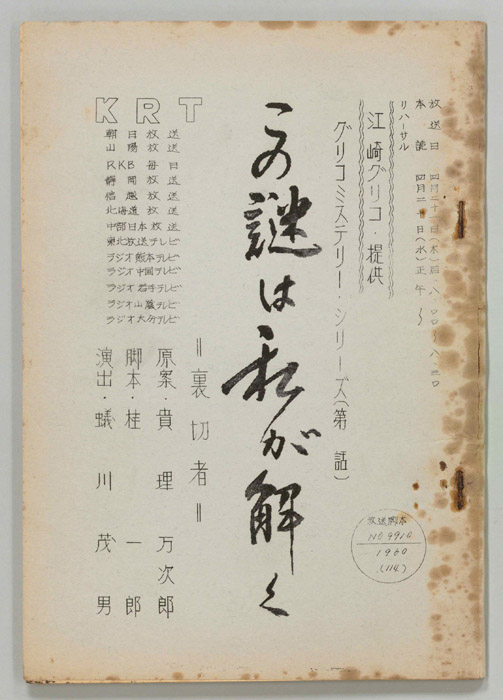 放送日 四月二十日(水)
リハーサル
江崎グリコ・提供
グリコミステリー・シリーズ(第 話)
この謎は私が解く
=裏切者=
原案・貴理万次郎
脚本・桂一郎
演出・蟻川茂男
KRT
朝日放送
山陽放送
RKB毎日
静岡放送
信越放送
北海道放送
中部日本放送
東北放送テレビ
ラジオ熊本テレビ
ラジオ中国テレビ
ラジオ岩手テレビ
ラジオ山陰テレビ
ラジオ大分テレビ
放送脚本
1960
(114)